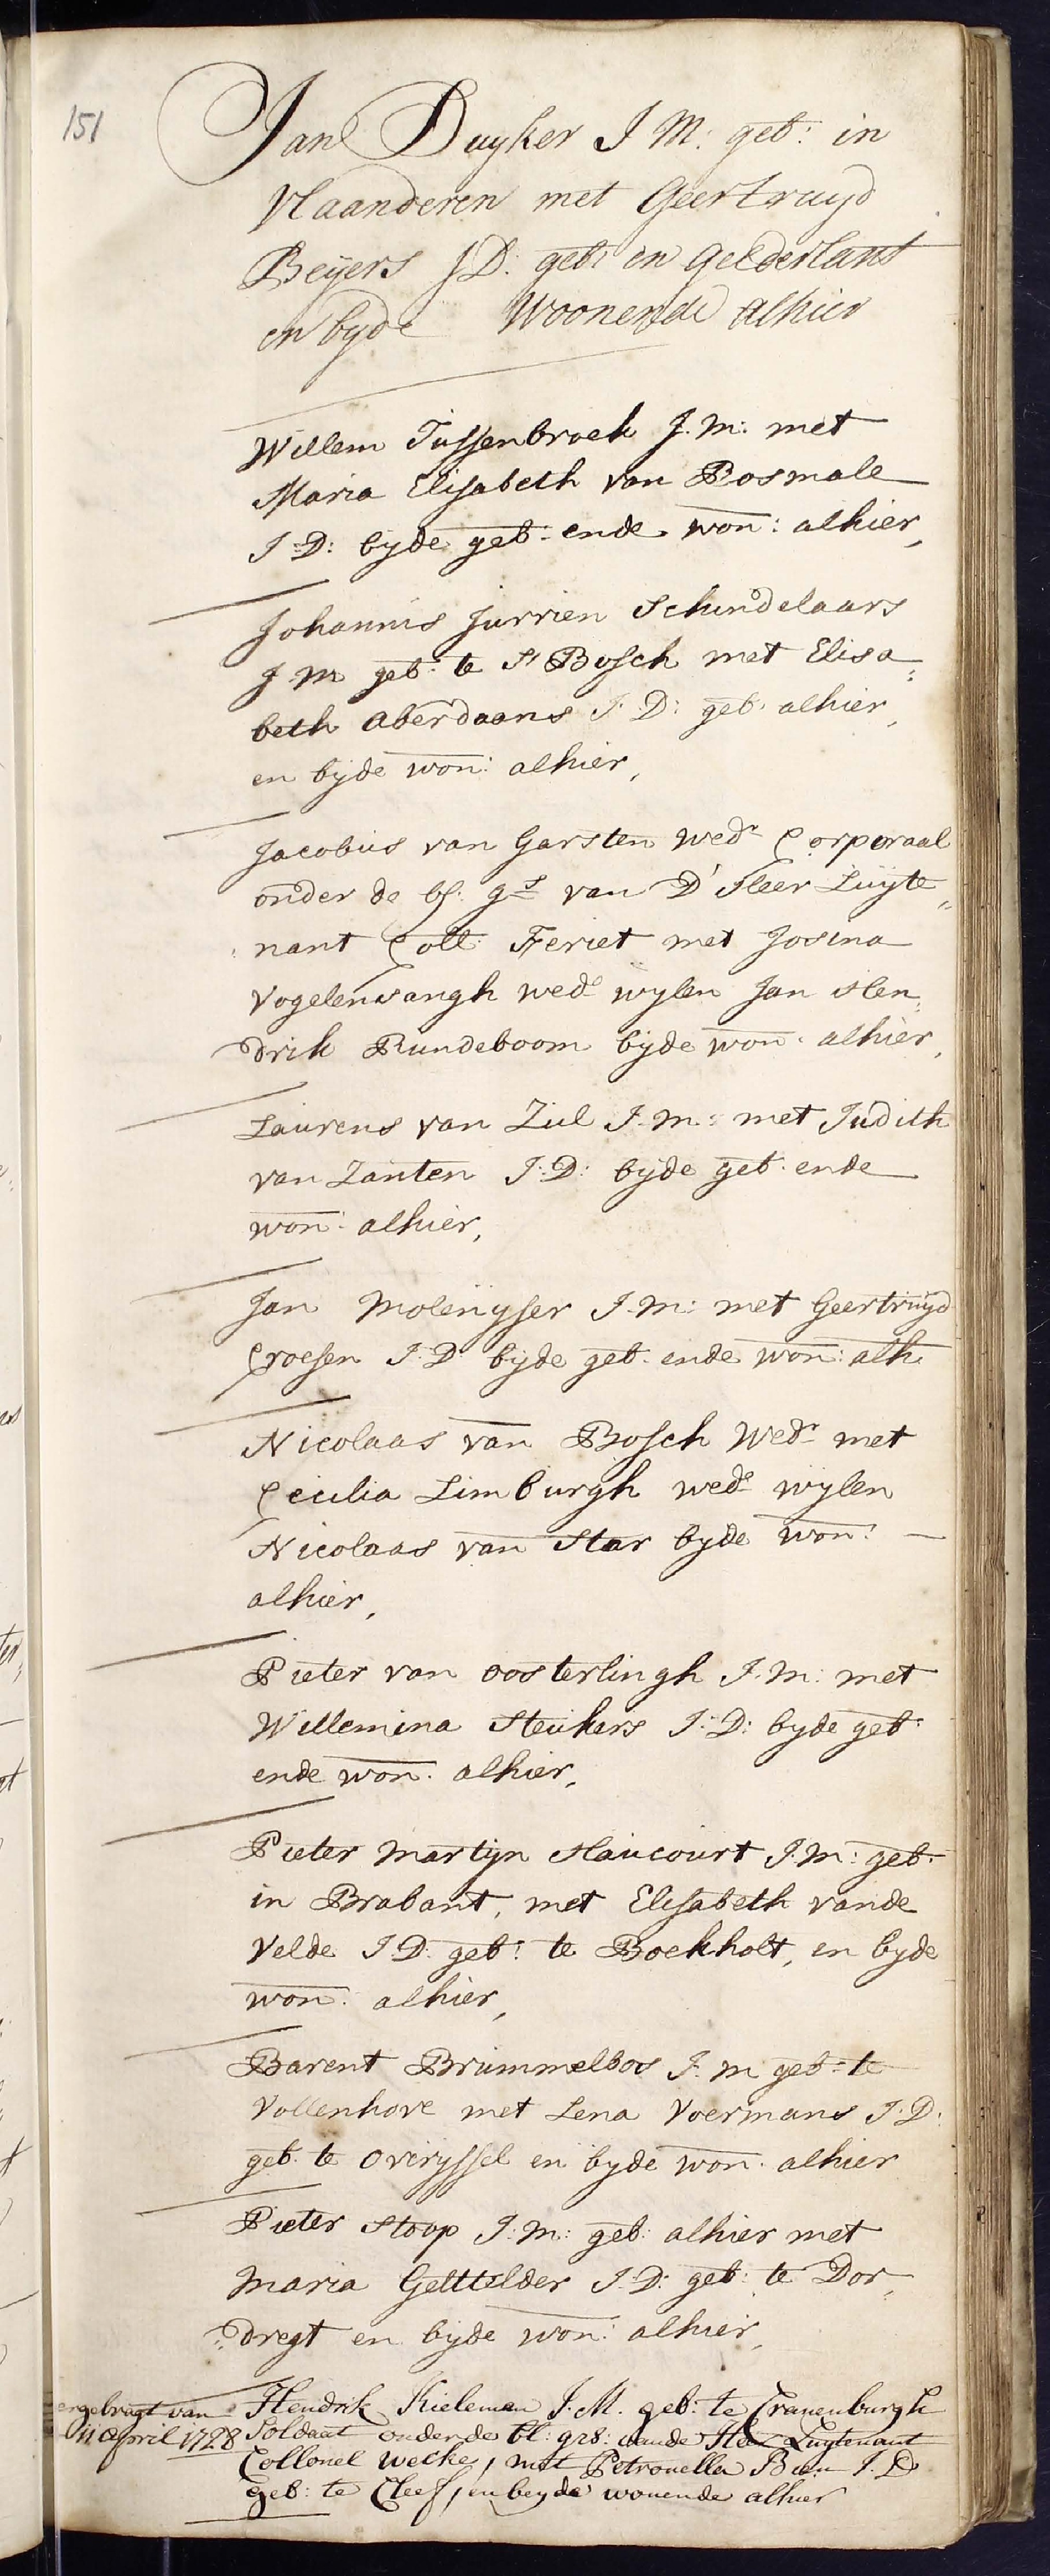 151
Jan Duyker J M: geb: in
Vlaanderen met Geertruyd
Beyers J D: geb: in Gelderlant
en byde Woonende alhier
Willem Tussenbroek J: M: met
Maria Elisabeth van Rosmale
J: D: byde geb: ende won: alhier,
Johannis Jurrien Schindelaars
J M geb: te s' Bosch met Elisa=
beth Aberdaans J: D: geb: alhier,
en byde won: alhier,
Jacobus van Garsten wedr Corporaal
onder de bl: gs van D' Heer Luyte„
nant Coll: Feriet met Josina
Vogelenvangh wede wylen Jan Hen„
drik Rundeboom byde won: alhier,
Laurens van Zul J: M: met Judith
van Zanten J: D: byde geb: ende
won: alhier,
Jan Molenysser J: M: met Geertruyd
Croesen J: D: byde geb: ende won: alh:
Nicolaas van Bosch Wedr met
Cecilia Limburgh wede wylen
Nicolaas van Star byde won: —
alhier,
Pieter van Oosterlingh J: M: met
Willemina Steukers J: D: byde geb:
ende won: alhier,
Pieter Martyn Haucourt J: M: geb:
in Brabant, met Elisabeth vande
Velde J: D: geb: te Boekholt, en byde
won: alhier,
Barent Brummelbos J: M geb: te
Vollenhove met Lena Voermans J: D:
geb: te Overyssel en byde won: alhier
Pieter Stoop J: M: geb: alhier met
Maria Gelttelder J: D: geb: te Dor„
dregt en byde won: alhier,
Hendrik Kieleman J. M. geb: te Cranenburgh
gebragt van
11 April 1728
Soldaat onder de bl: grs: vande Heer Luytenant
Collonel Welke, met Petronella J. D
geb: te Cleef, en beyde wonende alhier